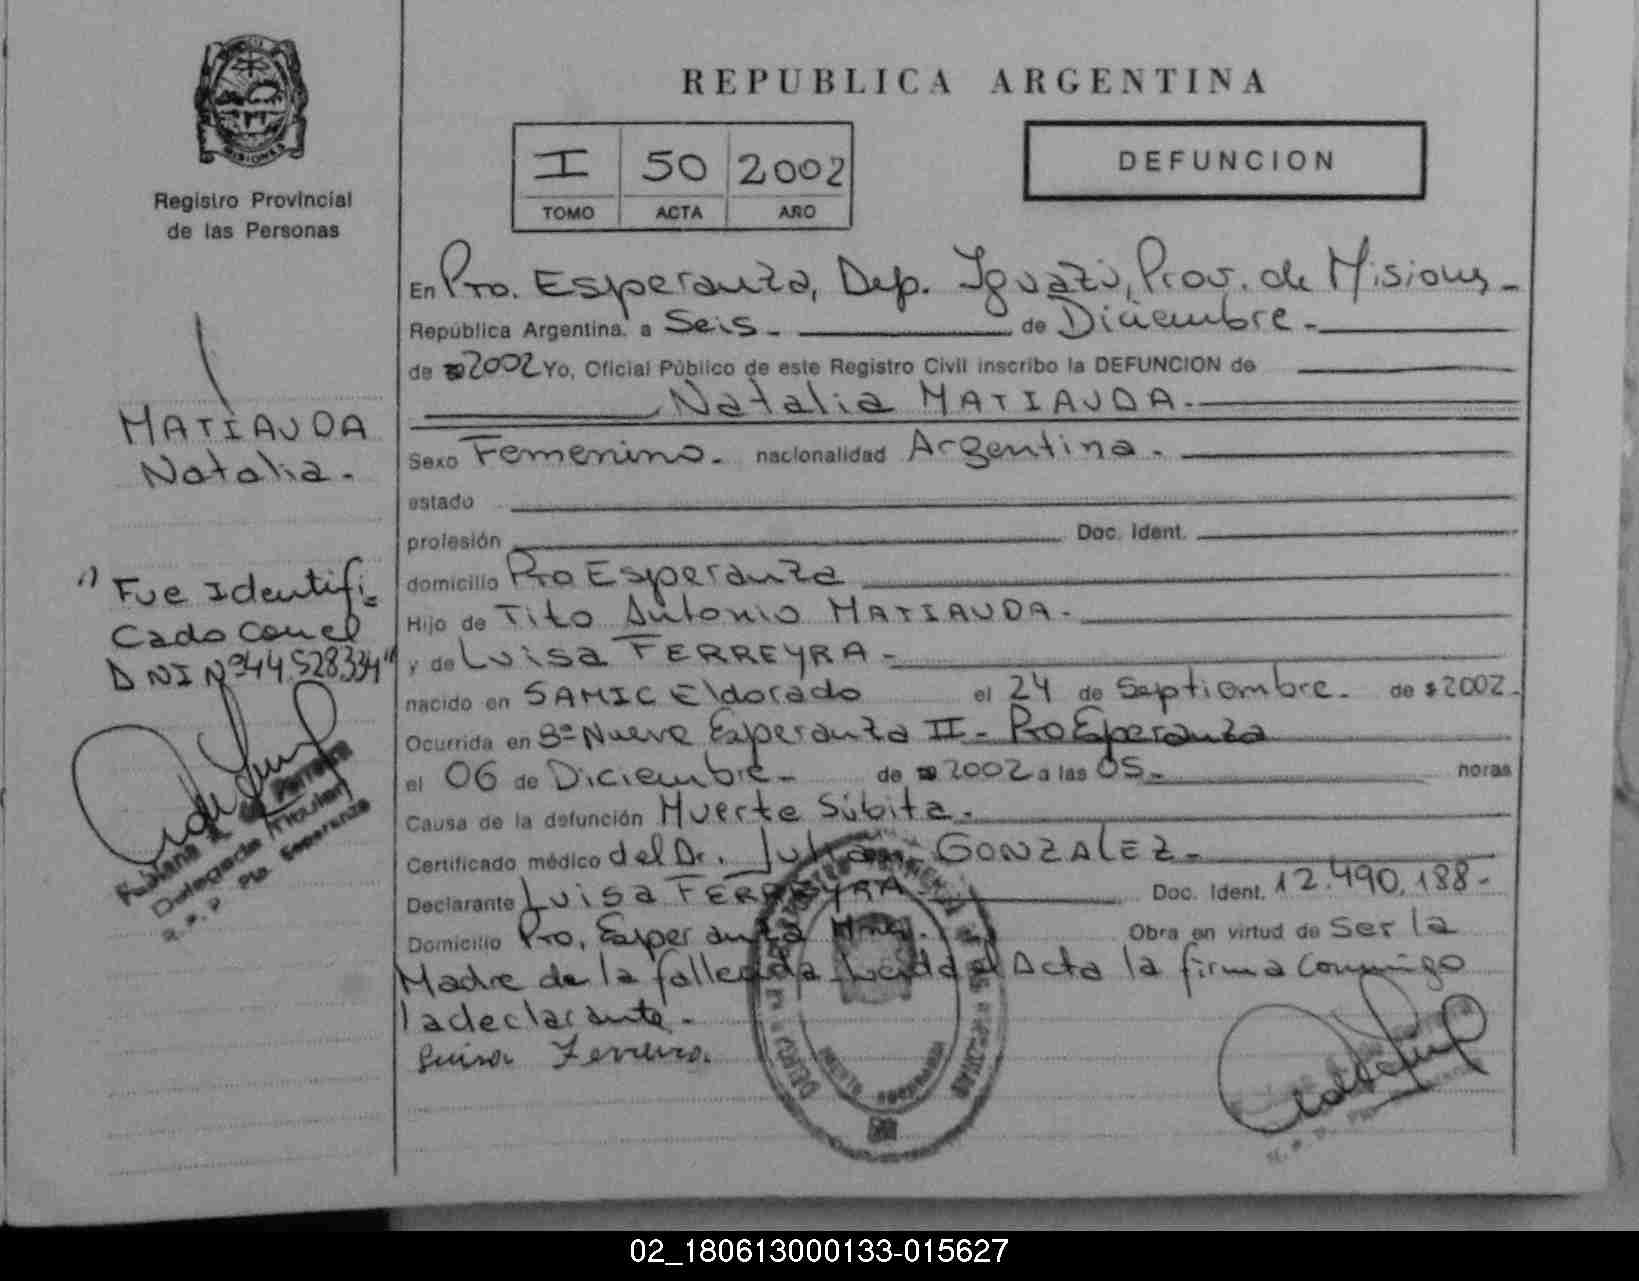 MISIONES
Registro Provincial
de las Personas
MATIAUDA
Natalia.
Fue Identifi=
cado con el
DNI Nº 44.528.334"
REPUBLICA ARGENTINA
I 50 2002
TOMO ACTA AÑO
DEFUNCION
En Pto. Esperanza, Dep. Iguazú, Prov. de Misiones -
República Argentina. a Seis. de Diciembre.
de 2002 Yo, Oficial Público de este Registro Civil inscribo la DEFUNCION de
Natalia MATIAUDA.
Sexo Femenino. nacionalidad Argentina.
estado
profesión Doc. Ident.
domicilio Pto Esperanza
Hijo de Tito Antonio MATIAUDA.
y de Luisa FERREYRA -
nacido en SAMIC Eldorado el 24 de Septiembre. de 2002.
Ocurrida en Bº Nueva Esperanza II - Pto Esperanza
el 06 de Diciembre. de 2002 a las 05. horas
Causa de la defunción Muerte Súbita.
Certificado médico del Dr. GONZALEZ.
Declarante Luisa FERREYRA Doc. Ident. 12.490.188.
Domicilio Pto. Esperanza Mnes. Obra en virtud de Ser la
Madre de la fallecida Leida el Acta la firma conmigo
la declarante.
Luisa Ferreira.
02_180613000133-015627